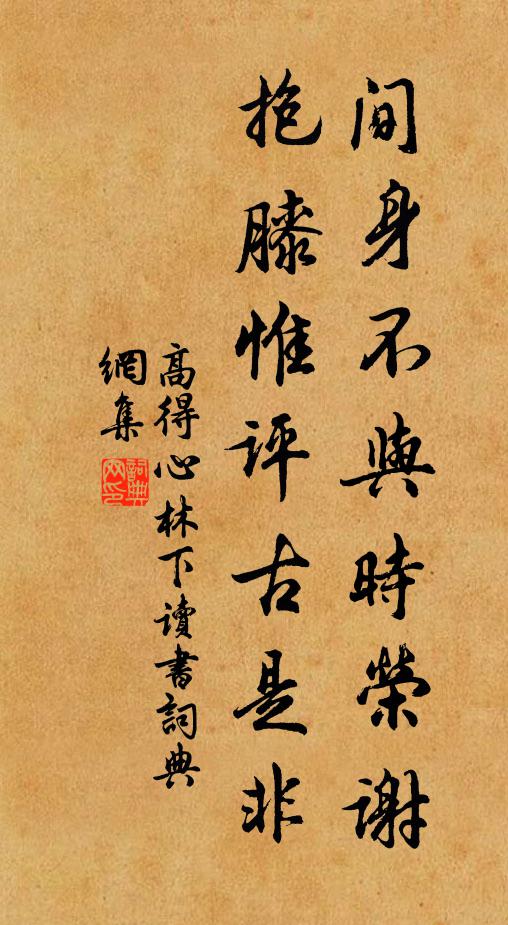 间身不與時榮謝
抱膝惟評古是非
高得心林下讀書詞典
網集
詞典
网印